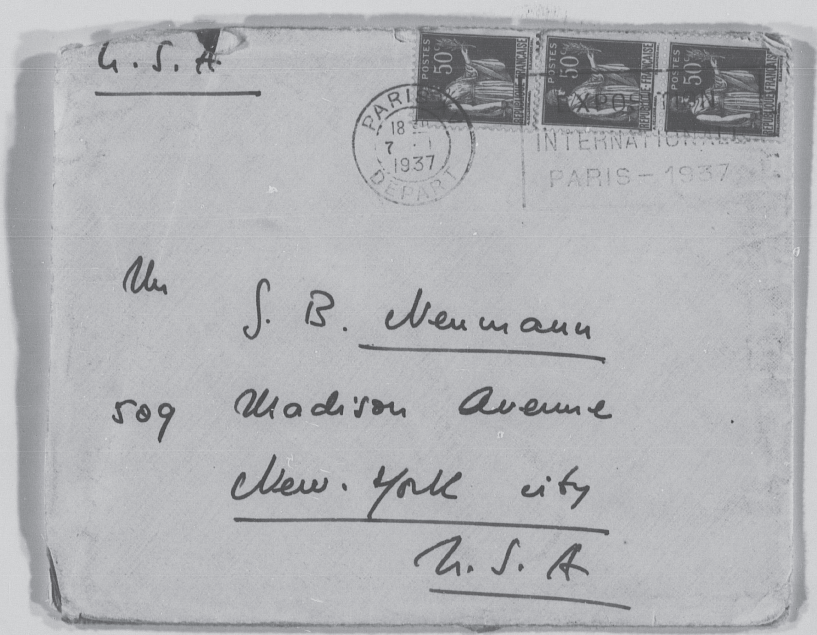 U.S.A
POSTES 50c REPUBLIQUE FRANCAISE
POSTES 50c REPUBLIQUE FRANCAISE
POSTES 50c REPUBLIQUE FRANCAISE
PARIS
18
7
1937
DEPART
EXPOSITION
INTERNATIONALE
PARIS - 1937
Mr
S. B. Neumann
509 Madison Avenue
New-York city
U.S.A